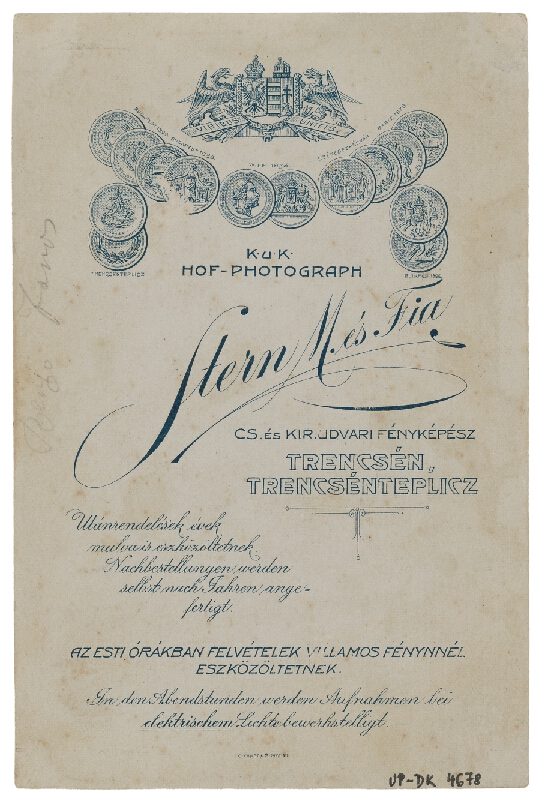 K.u.K.
HOF-PHOTOGRAPH
Stern M. és Fia
CS. és KIR. UDVARI FÉNYKÉPÉSZ
TRENCSÉN,
TRENCSÉNTEPLICZ
TRENCSÉNTEPLICZ
Utánrendelések évek
mulva is eszközöltetnek.
Nachbestellungen werden
selbst nach Jahren ange-
fertigt.
AZ ESTI ÓRÁKBAN FELVÉTELEK VILLAMOS FÉNYNNÉL
ESZKÖZÖLTETNEK.
In den Abendstunden werden Aufnahmen bei
elektrischem Lichte bewerkstelligt.
UP-DK 4678